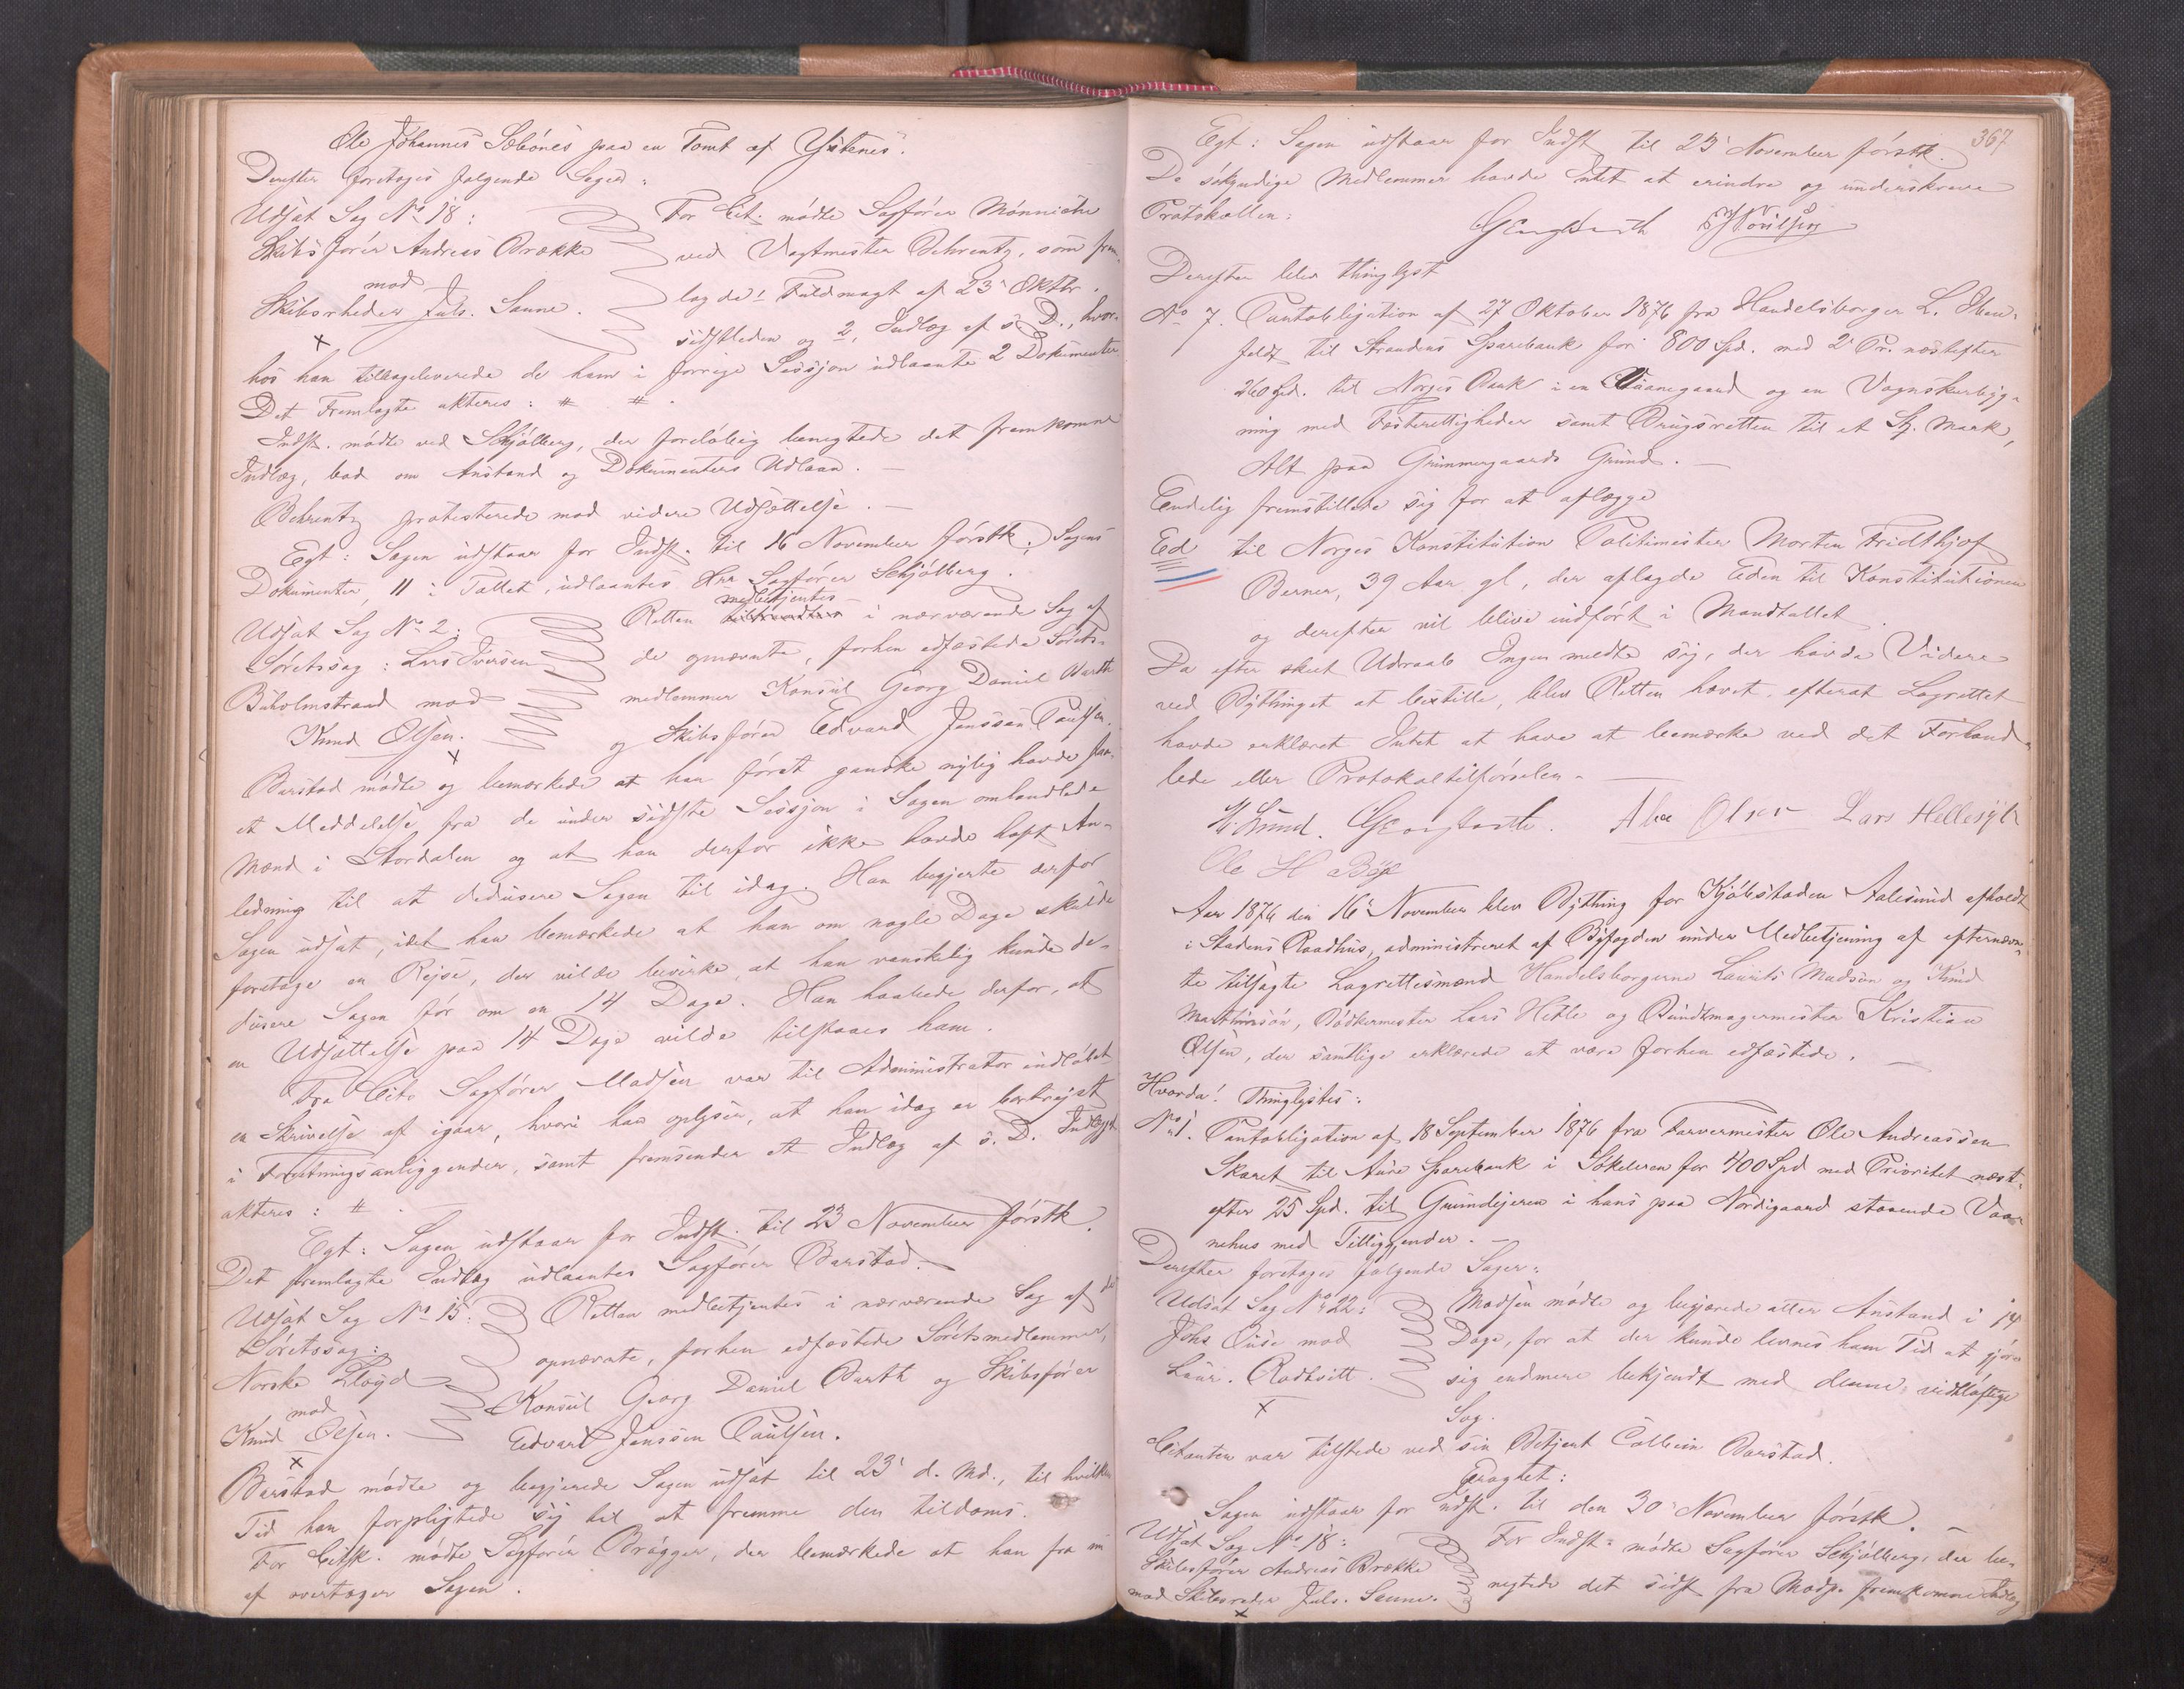 Ole Johannes Sæbönes paa en Tomt af Ystenes.
Derefter foretoges følgende Sager:
Udsat Sag No 18:
Skibsfører Andreas Brække
mod
Skibsrheder Juls. Sanne.
For Cit. mødte Sagfører Mönniche
ved Vagtmester Behrentz, som frem-
lagde 1 Fuldmagt af 23' Oktbr.
sidstleden og 2, Indlæg af s. D., hvor-
hos han tilbageleverede de ham i forrige Session udlaante 2 Dokumenter
Det Fremlagte akteres: # #.
Indst. mødte ved Schjölberg, der foreløbig benegtede det fremkomne
Indlæg, bad om Anstand og Dokumenters Udlaan. —
Behrentz protesterede mod videre Udsættelse. —
Egt: Sagen udstaar for Indst. til 16 November förstk. Sagens
Dokumenter, 11 i Tallet, udlaantes Hrr Sagfører Schjölberg.
Udsat Sag No 2:
Söretssag: Lars Iversen
Buholmstrand mod
Knud Olsen.
Retten medbetjentes i nærværende Sag af
de opnævnte, forhen edfæstede Sörets-
medlemmer Konsul Georg Daniel Barth
og Skibsfører Edvard Janssen Paulsen.
Barstad mødte og bemærkede at han först ganske nylig havde faa-
et Meddelelse fra de under sidste Session i Sagen omhandlede
Mænd i Stordalen og at han derfor ikke havde havt An-
ledning til at dedusere Sagen til idag. Han begjerte derfor
Sagen udsat, idet han bemærkede at han om nogle Dage skulde
foretage en Rejse, der vilde bevirke, at han vanskelig kunde de-
dusere Sagen för om en 14 Dage. Han haabede derfor, at
en Udsættelse paa 14 Dage vilde tilstaaes ham.
Fra Cits Sagfører Madsen var til Administrator indløbet
en Skrivelse af igaar, hvori han oplyser, at han idag er bortrejst
i Fretningsanliggender, samt fremsender et Indlæg af s. D. Indlægget
akteres: #.
Egt: Sagen udstaar for Indst. til 23 November förstk.
Det fremlagte Indlæg udlaantes Sagfører Barstad. —
Udsat Sag No 15:
Söretssag:
Norske Lloyd
mod
Knud Olsen.
Retten medbetjentes i nærværende Sag af de
opnævnte, forhen edfæstede Söretsmedlemmer,
Konsul Georg Daniel Barth og Skibsfører
Edvart Janssen Paulsen.
Barstad mødte og begjerede Sagen udsat til 23' d. Md., til hvilken
Tid han forpligtede sig til at fremme den tildoms.
For Citsk. mødte Sagfører Brøgger, der bemærkede at han fra nu
af overtager Sagen.
367
Egt: Sagen udstaar for Indst til 23' November förstk.
De søkyndige Medlemmer havde Intet at erindre og underskreve
Protokollen:
G Eng Barth E J Poulsen
Derefter blev thinglyst
No 7. Pantobligation af 27 Oktober 1876 fra Handelsborger L. Iben-
feldt til Strandens Sparebank for 800 Spd. med 2' Pr. næstefter
260 Spd. til Norges Bank i en Vaanegaard og en Vognskurbyg-
ning med Festerettigheder samt Brugsretten til et St. Mark,
Alt paa Grimmergaards Grund. —
Endelig fremstillede sig for at aflægge
Ed til Norges Konstitution Politimester Morten Fridthjof
Berner, 39 Aar gl, der aflagde Eden til Konstitutionen
og derefter vil blive indført i Mandtallet.
Da efter skeet Udraab Ingen meldte sig, der havde Videre
ved Bythinget at bestille, blev Retten hævet, efterat Lagrettet
havde erklæret Intet at have at bemærke ved det Forhand-
lede eller Protokoltilførselen. —
M. Lund. G Eng Barth. Abr Olsen Lars Hellesylt
Ole H Böge
Aar 1876 den 16' November blev Bything for Kjøbstaden Aalesund afholdt
i Stadens Raadhus, administreret af Byfogden under Medbetjening af efternævn-
te tilsagte Lagrettesmænd Handelsborgerne Laurits Madsön og Knud
Marthinsön, Bödkermester Lars Hible og Bundtmagermester Kristian
Olsen, der samtlige erklærede at være forhen edfæstede. —
Hvorda! Thinglystes:
No 1. Pantobligation af 18 September 1876 fra Farvermester Ole Andreassen
Skaret til Aure Sparebank i Sökelven for 400 Spd med Prioritet næst-
efter 25 Spd. til Grundejeren i hans paa Nordigaard staaende Vaa-
nehus med Tilliggender. —
Derefter foretoges følgende Sager:
Udsat Sag No 22:
Johs Buse mod
Laur. Rødhvitt.
Madsen mødte og begjærede atter Anstand i 14
Dage, for at der kunde levnes ham Tid at gjøre
sig endmere bekjendt med denne vidtløftige
Sag.
Citanten var tilstede ved sin Betjent Collein Barstad.
Eragtet:
Sagen udstaar for Indst. til den 30' November förstk. —
Udsat Sag No 18:
Skibsfører Andreas Brække
mod Skibsreder Juls. Sanne.
For Indst. mødte Sagfører Schjölberg, der be-
negtede det sidst fra Modp. fremkomne Indlæg